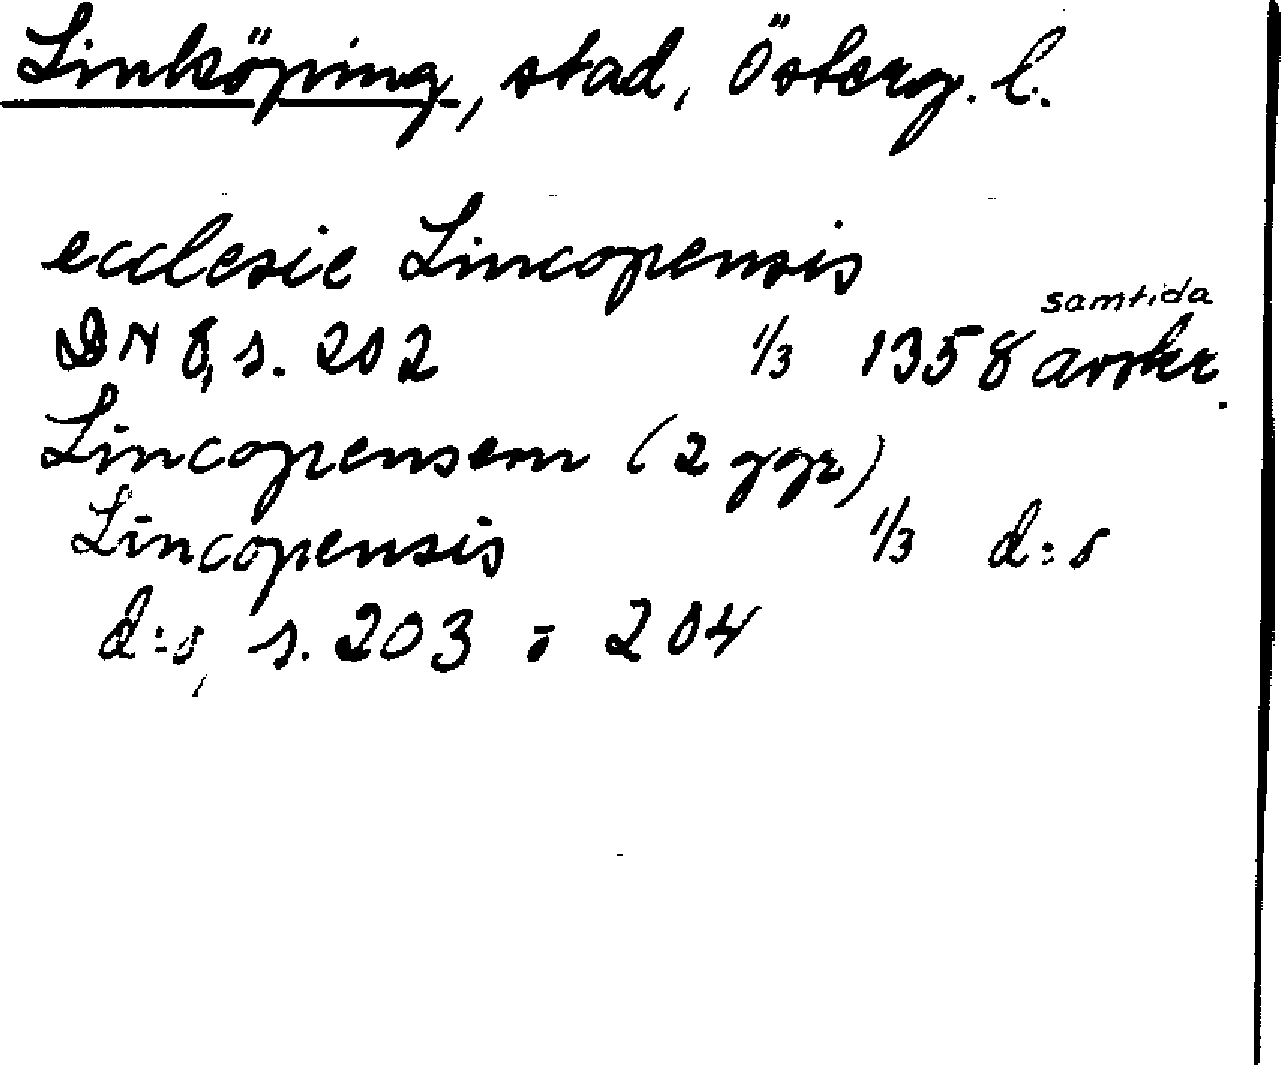 Linköping, stad, Österg. l.
ecclesie Lincopensis
samtida
DN 8, s. 202 1/3 1358 avskr.
Lincopensem (2 ggr)
Lincopensis 1/3 d:o
d:o, s. 203 o 204